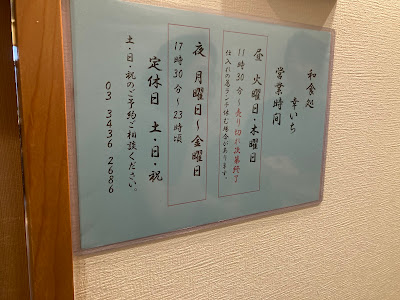 和食処
幸いち
営業時間
昼 火曜日・木曜日
11時30分～売り切れ次第終了
仕入れの為ランチ休む場合があります。
夜 月曜日～金曜日
17時30分～23時頃
定休日 土・日・祝
土・日・祝のご予約ご相談ください。
03 3436 2686